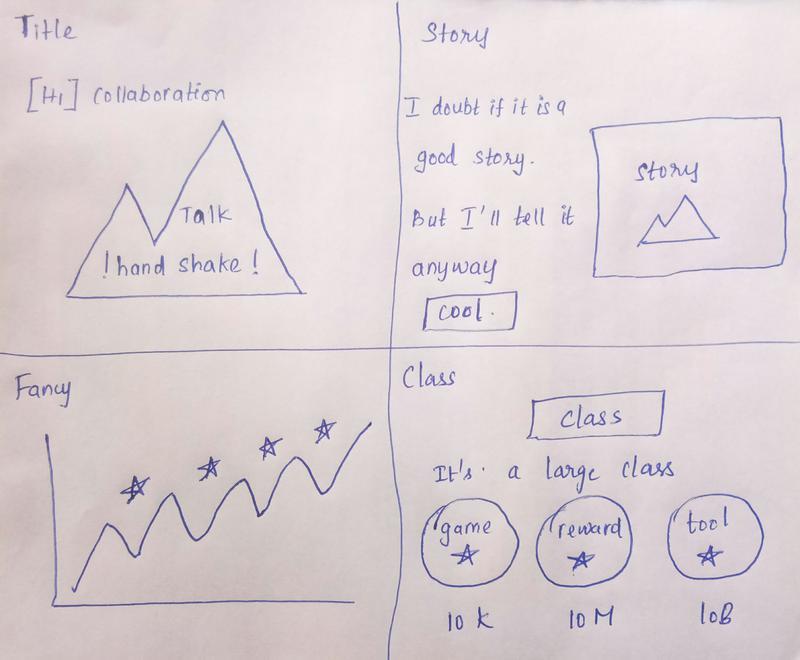 Title
[Hi] Collaboration
Talk
! hand shake !
Story
I doubt if it is a
good story.
But I'll tell it
anyway
cool.
story
Fancy
Class
class
It's. a large class
game
reward
tool
10 K
10 M
10B